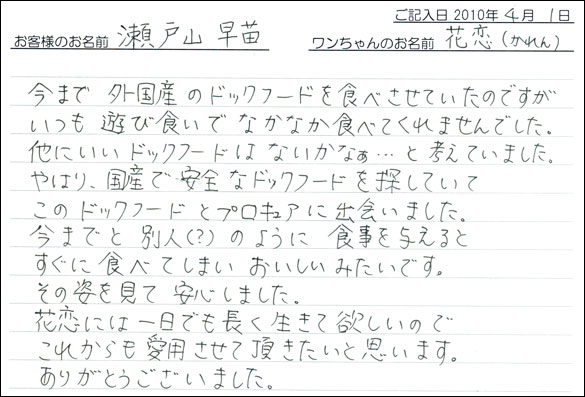 ご記入日 2010年 4月 1日
お客様のお名前 瀬戸山 早苗 ワンちゃんのお名前 花恋(かれん)
今まで 外国産 のドックフードを食べさせていたのですが
いつも 遊び食いで なかなか食べてくれませんでした。
他にいいドックフードは ないかなぁ…と考えていました。
やはり、国産で安全なドックフードを探していて
このドックフードとプロキュアに出会いました。
今までと 別人(?)のように 食事を与えると
すぐに 食べてしまい おいしいみたいです。
その姿を見て 安心しました。
花恋には一日でも長く生きて欲しいので
これからも愛用させて頂きたいと思います。
ありがとうございました。